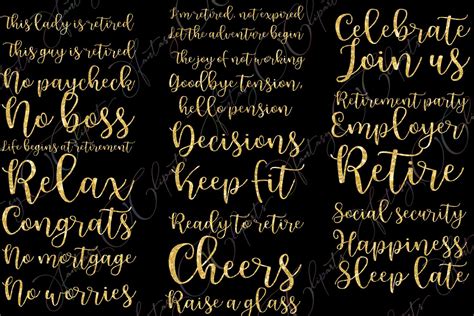 This lady is retired
This guy is retired
No paycheck
No boss
Life begins at retirement
Relax
Congrats
No mortgage
No worries
I'm retired, not expired
Let the adventure begin
The joy of not working
Goodbye tension,
hello pension
Decisions
Keep fit
Ready to retire
Cheers
Raise a glass
Celebrate
Join us
Retirement party
Employer
Retire
Social security
Happiness
Sleep late